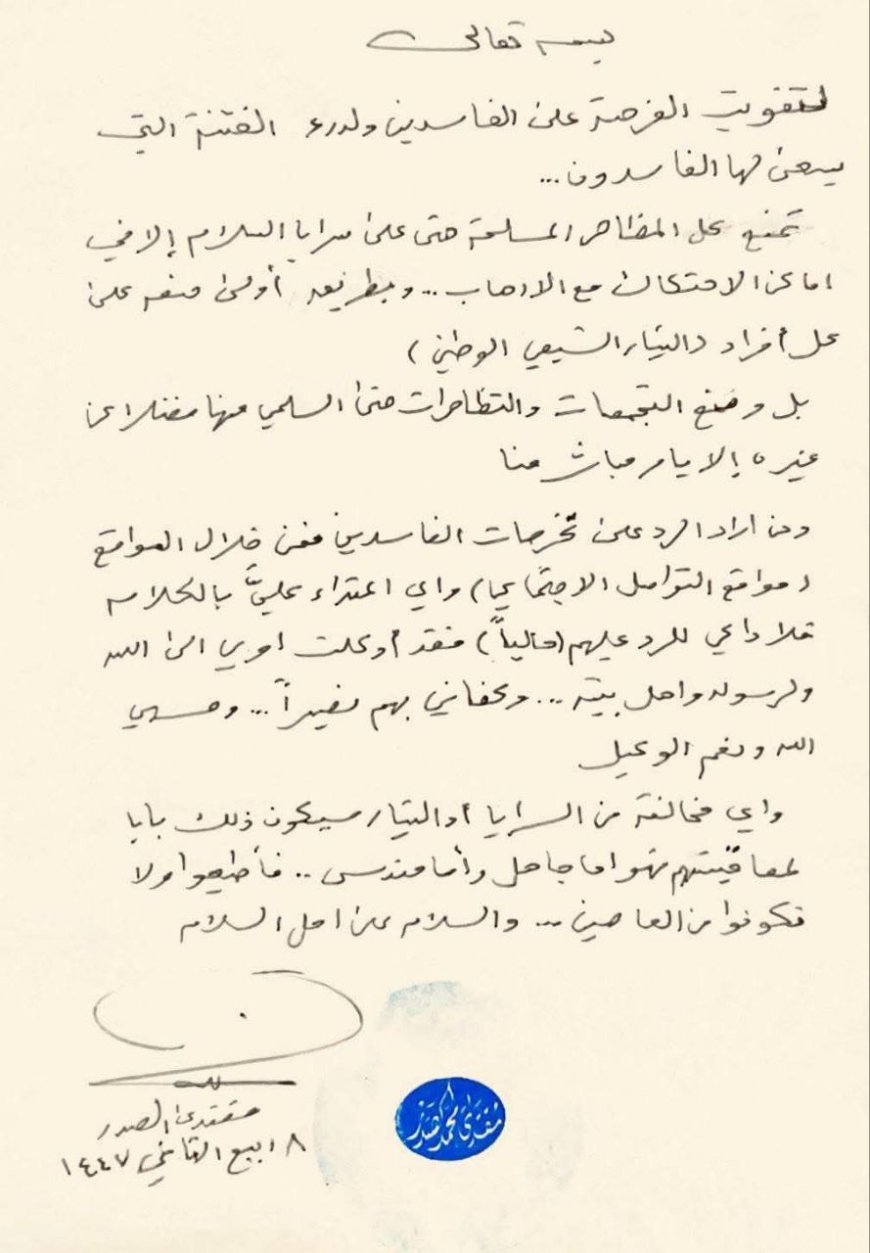 بسمه تعالى
لتفويت الفرصة على الفاسدين ولدرء الفتنة التي
يسعى لها الفاسدون...
تمنع كل المظاهر المسلحة حتى على سرايا السلام إلا في
اماكن الاحتكاك مع الارهاب .. وبطريق أولى منعه على
كل أفراد (التيار الشيعي الوطني)
بل ومنع التجمعات والتظاهرات حتى السلمي منها فضلا عن
غيره إلا بامر مباشر منا
ومن اراد الرد على تخرصات الفاسدين فمن خلال المواقع
(مواقع التواصل الاجتماعي) واي اعتداء عليَّ بالكلام
فلا داعي للرد عليهم (حالياً) فقد أوكلت امري الى الله
ولرسوله واهل بيته ... وكفاني بهم نصيراً ... وحسبي
الله ونعم الوكيل
واي مخالفة من السرايا أو التيار سيكون ذلك بابا
لمعاقبتهم فهو اما جاهل وأما مندس .. فأطيعوا ولا
تكونوا من العاصين ... والسلام على اهل السلام
مقتدى الصدر
٨ ربيع الثاني ١٤٤٧
مقتدى محمد الصدر